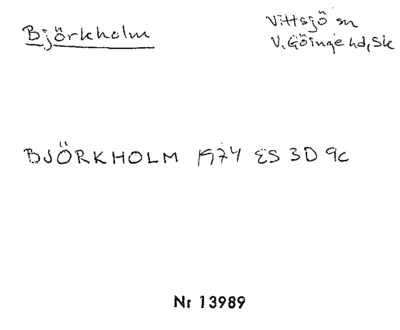 Björkholm
Vittsjö sn
V. Göinge hd, Sk
BJÖRKHOLM 1974 ES 3D 9c
Nr 13989